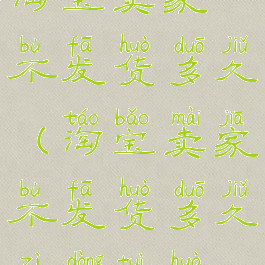 淘宝卖家
bù fā huò duō jiǔ
不发货多久
táo bǎo mài jiā
（淘宝卖家
bù fā huò duō jiǔ
不发货多久
zì dòng tuì huò